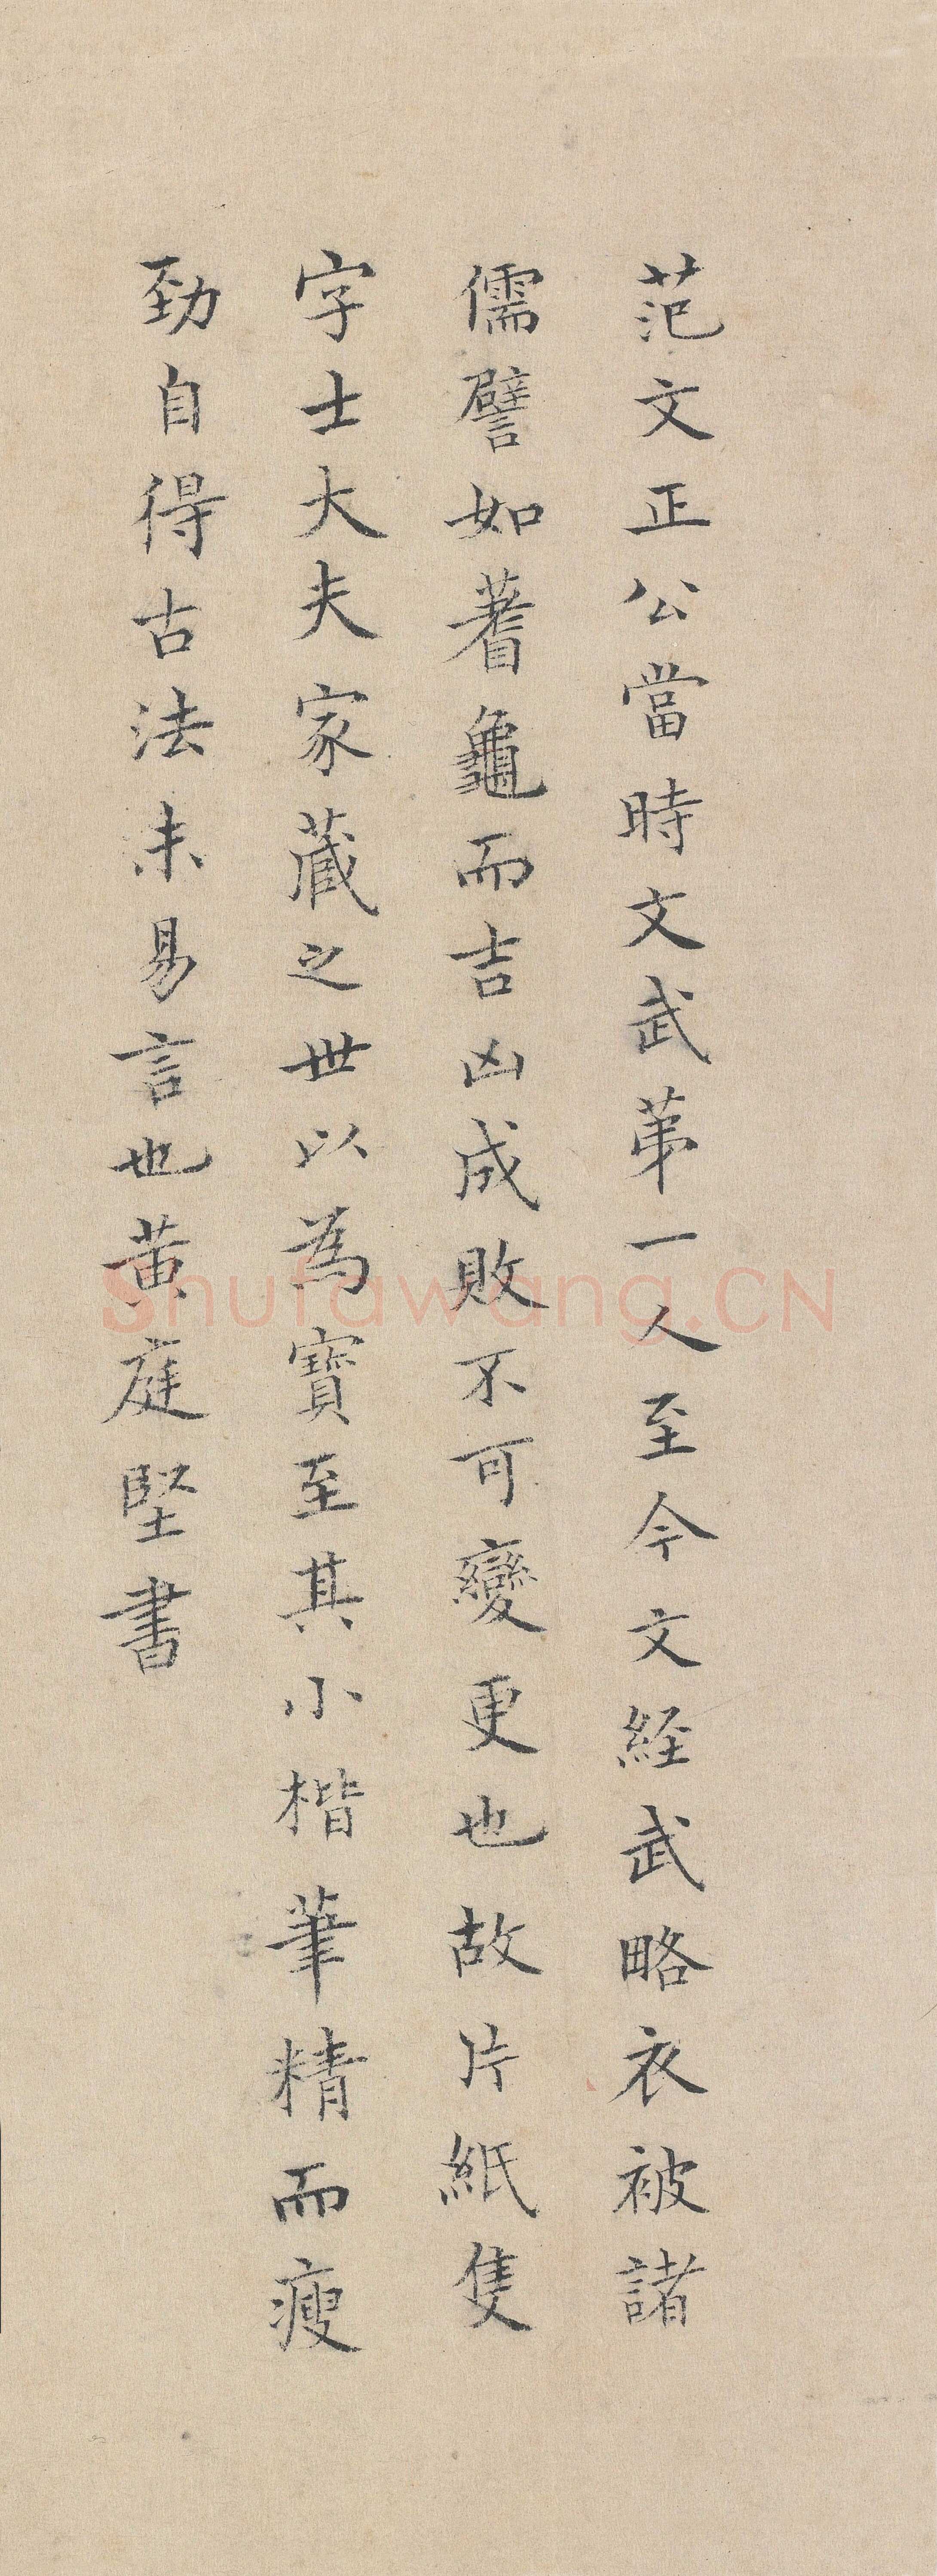 范文正公當時文武苐一人至今文経武略衣被諸
儒譬如蓍龜而吉凶成敗不可變更也故片紙隻
字士大夫家藏之世以為寶至其小楷筆精而瘦
勁自得古法未易言也黄庭堅書
Shufawang.CN